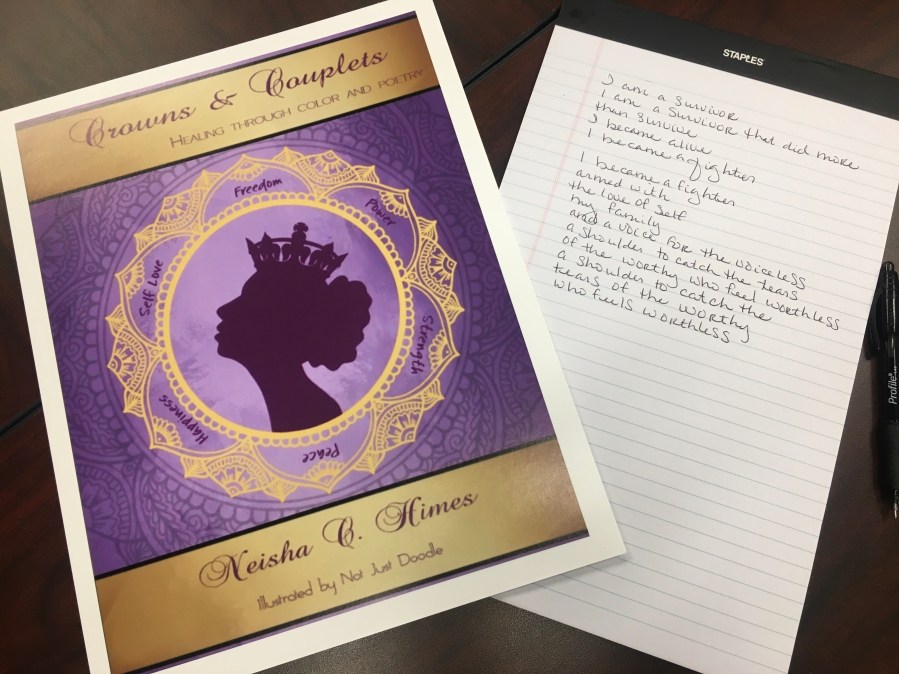 Crowns & Couplets
Healing through color and poetry
Freedom
Power
Self Love
Strength
Happiness
Peace
Neisha C. Himes
Illustrated by Not Just Doodle
STAPLES
I am a survivor
I am a survivor that did more
than survive
I became alive
I became a fighter
I became a fighter
armed with
the love of self
my family
and a voice for the voiceless
a shoulder to catch the tears
of the worthy who feel worthless
a shoulder to catch the
tears of the worthy
who feels worthless
Profile